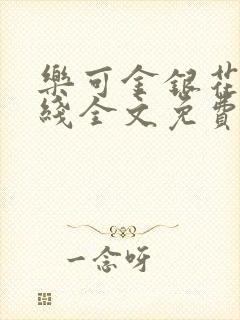 樂可金銀花
綫全文免費
一念呀